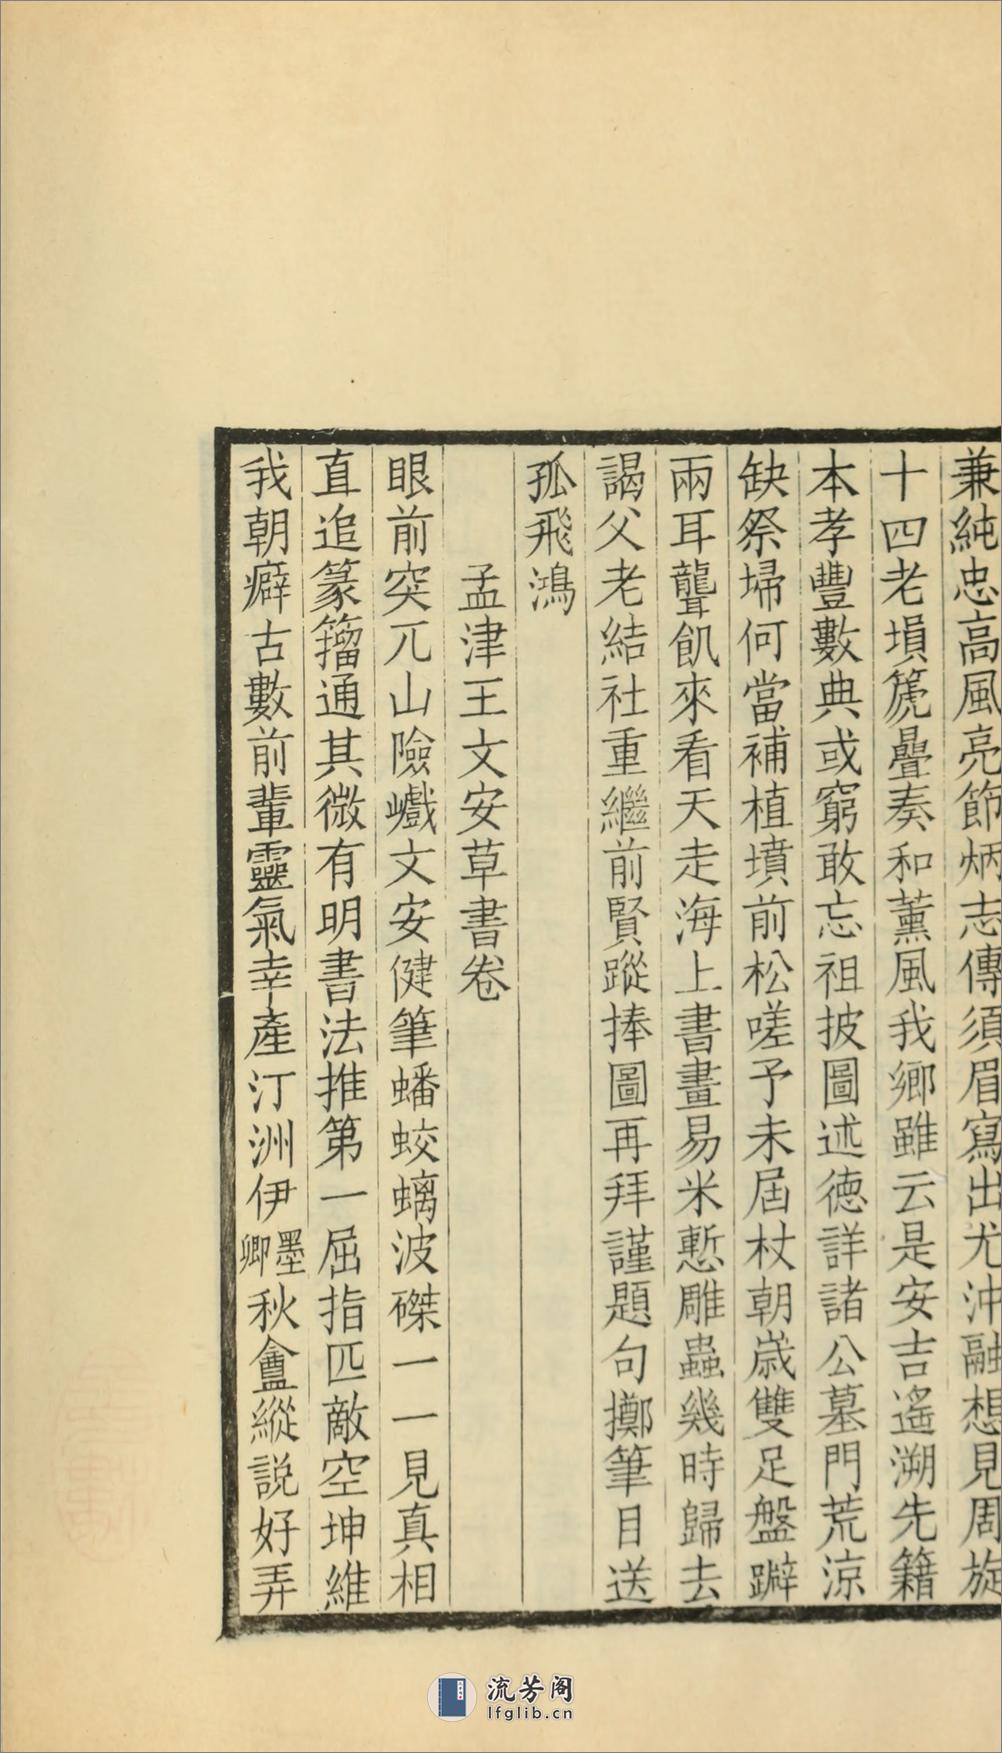 兼純忠高風亮節炳志傳須眉寫出尤沖融想見周旋
十四老塤篪疊奏和薰風我鄉雖云是安吉遙溯先籍
本孝豐數典或窮敢忘祖披圖述德詳諸公墓門荒涼
缺祭埽何當補植墳前松嗟予未屆杖朝歲雙足盤躃
兩耳聾飢來看天走海上書畫易米慙雕蟲幾時歸去
謁父老結社重繼前賢蹤捧圖再拜謹題句擲筆目送
孤飛鴻
孟津王文安草書卷
眼前突兀山險巇文安健筆蟠蛟螭波磔一一見真相
直追篆籀通其微有明書法推第一屈指匹敵空坤維
我朝癖古數前輩靈氣幸產汀洲伊墨卿秋盦縱說好弄
流芳阁
lfglib.cn